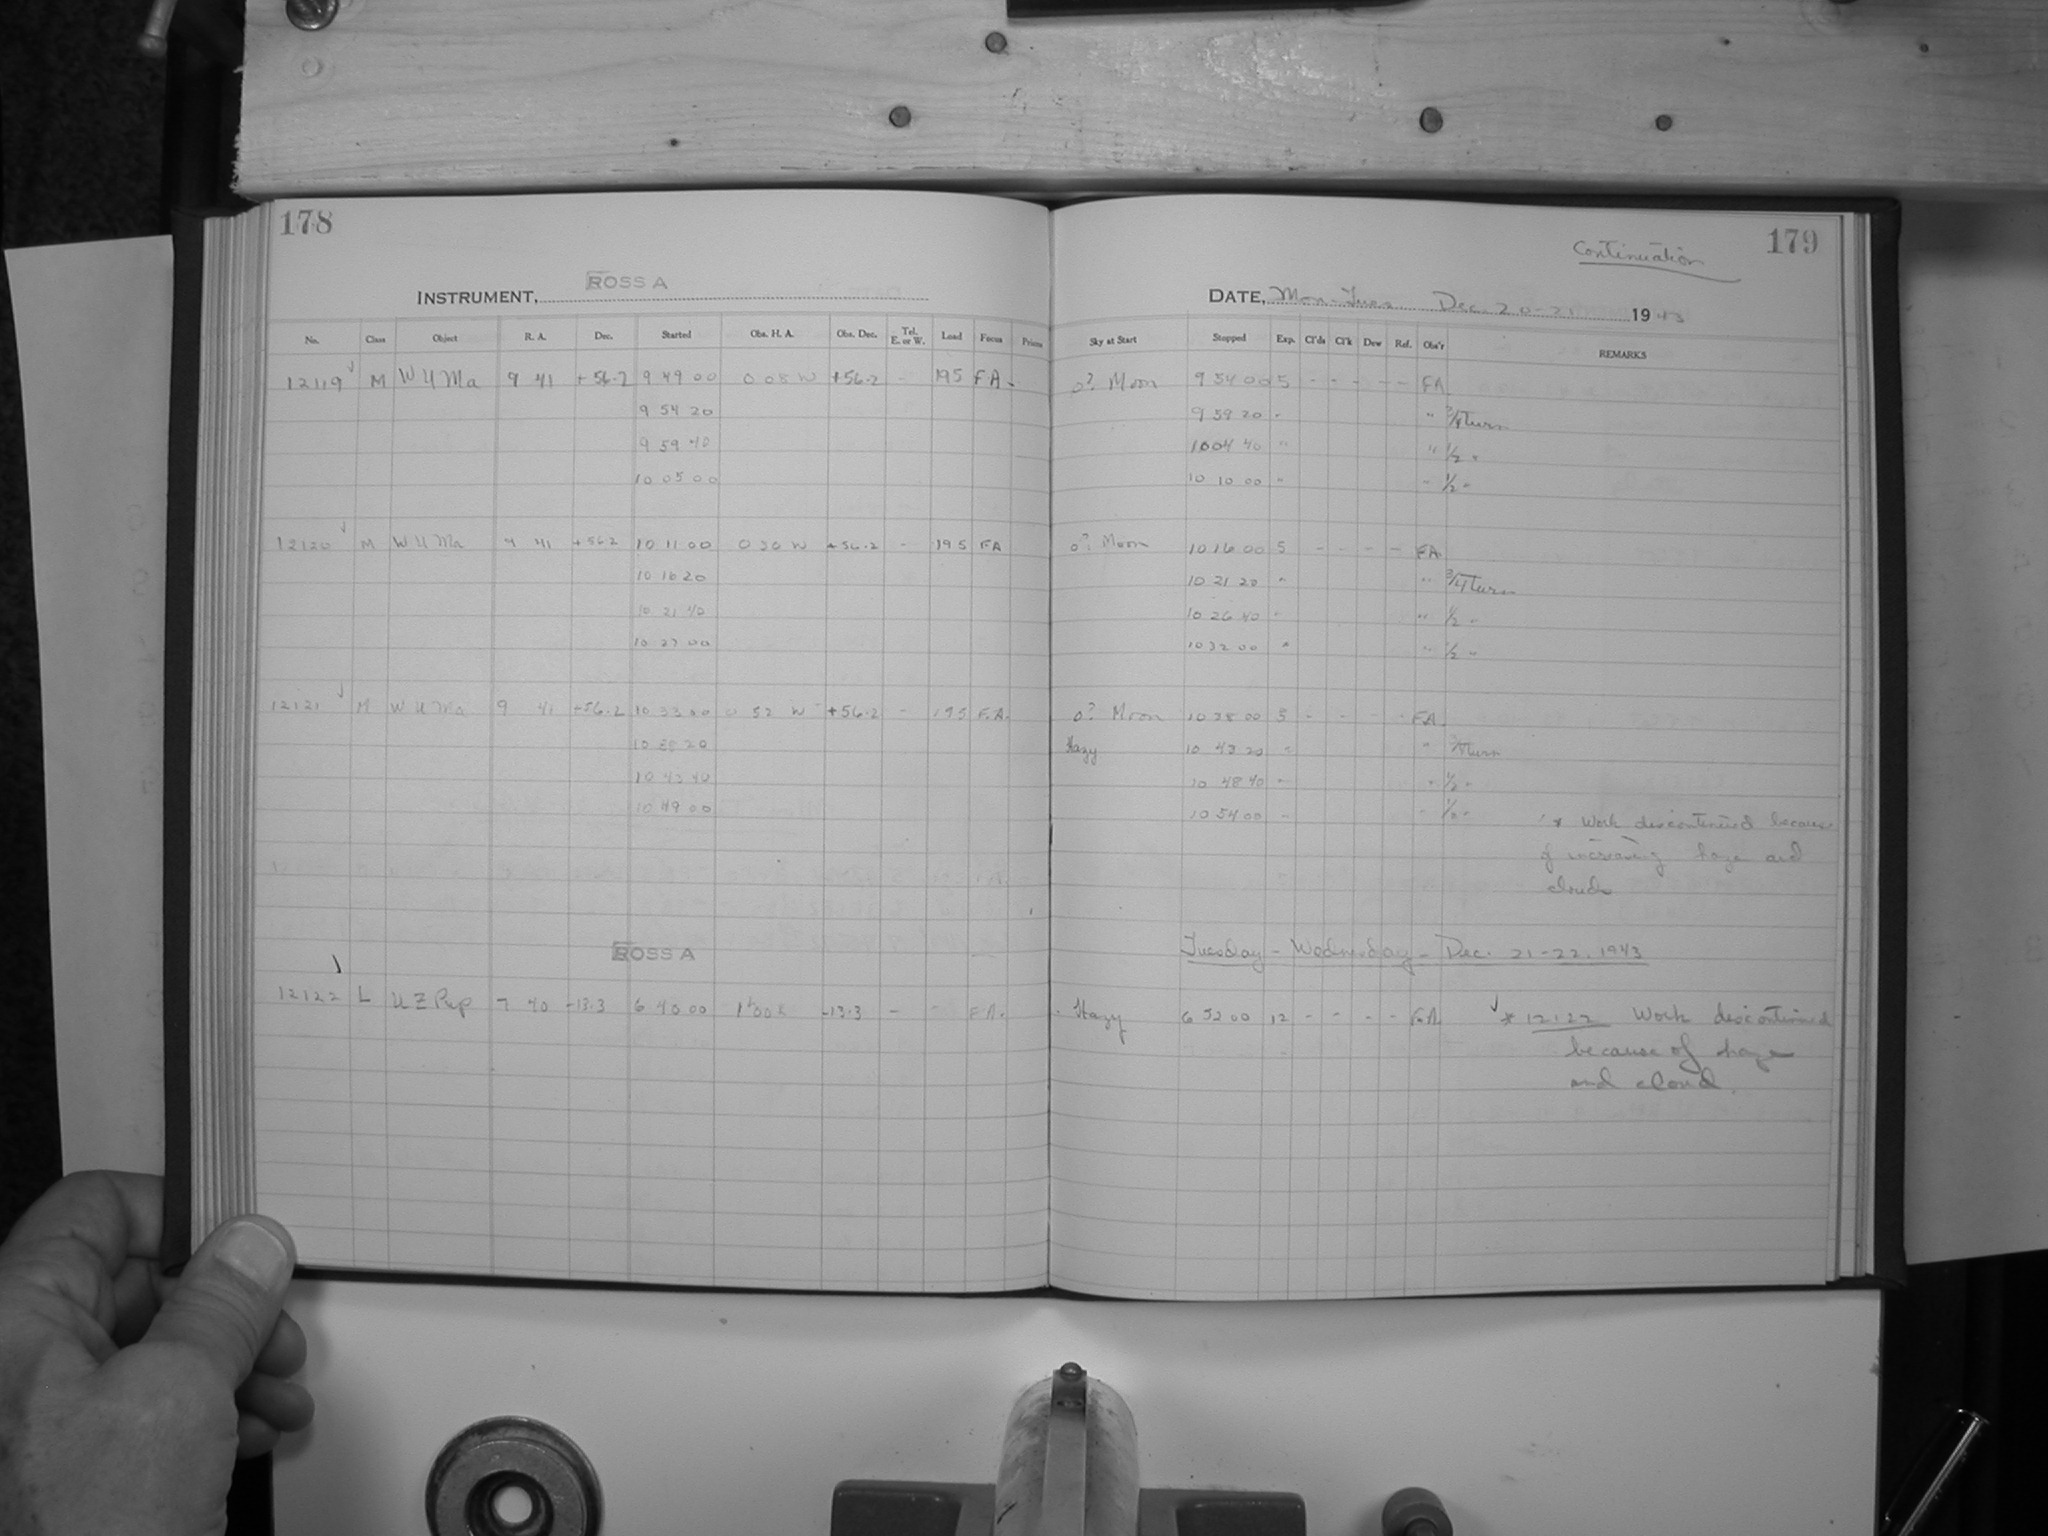 178
INSTRUMENT, ROSS A
No. Class Object R. A. Dec. Started Obs. H. A. Obs. Dec. Tel. E. or W. Load Focus Prisms
12119 M W U Ma 9 41 +56.2 9 49 00 0 08 W +56.2 - 195 F.A.
9 54 20
9 59 40
10 05 00
12120 M W U Ma 9 41 +56.2 10 11 00 0 30 W +56.2 - 195 FA
10 16 20
10 21 40
10 27 00
12121 M W U Ma 9 41 +56.2 10 33 00 0 52 W +56.2 - 195 F.A.
10 38 20
10 43 40
10 49 00
ROSS A
12122 L U Z Pup 7 40 -13.3 6 40 00 -13.3 - - F.A.
Continuation 179
DATE, Mon-Tues. Dec. 20-21 1943
Sky at Start Stopped Exp. Cl'ds Cl'k Dew Ref. Obs'r REMARKS
o? Moon 9 54 00 5 - - - - - FA
9 59 20 " " 3/4 turn
10 04 40 " " 1/2 "
10 10 00 " " 1/2 "
o? Moon 10 16 00 5 - - - - FA.
10 21 20 " " 3/4 turn
10 26 40 " " 1/2 "
10 32 00 " " 1/2 "
o? Moon 10 38 00 5 - - - - FA.
Hazy 10 43 20 " " 3/4 turn
10 48 40 " " 1/2 "
10 54 00 " " 1/2 "
* Work discontinued because
of increasing haze and
clouds
Tuesday - Wednesday - Dec. 21-22, 1943
Hazy 6 52 00 12 - - - - F.A. * 12122 Work discontinued
because of haze
and cloud.